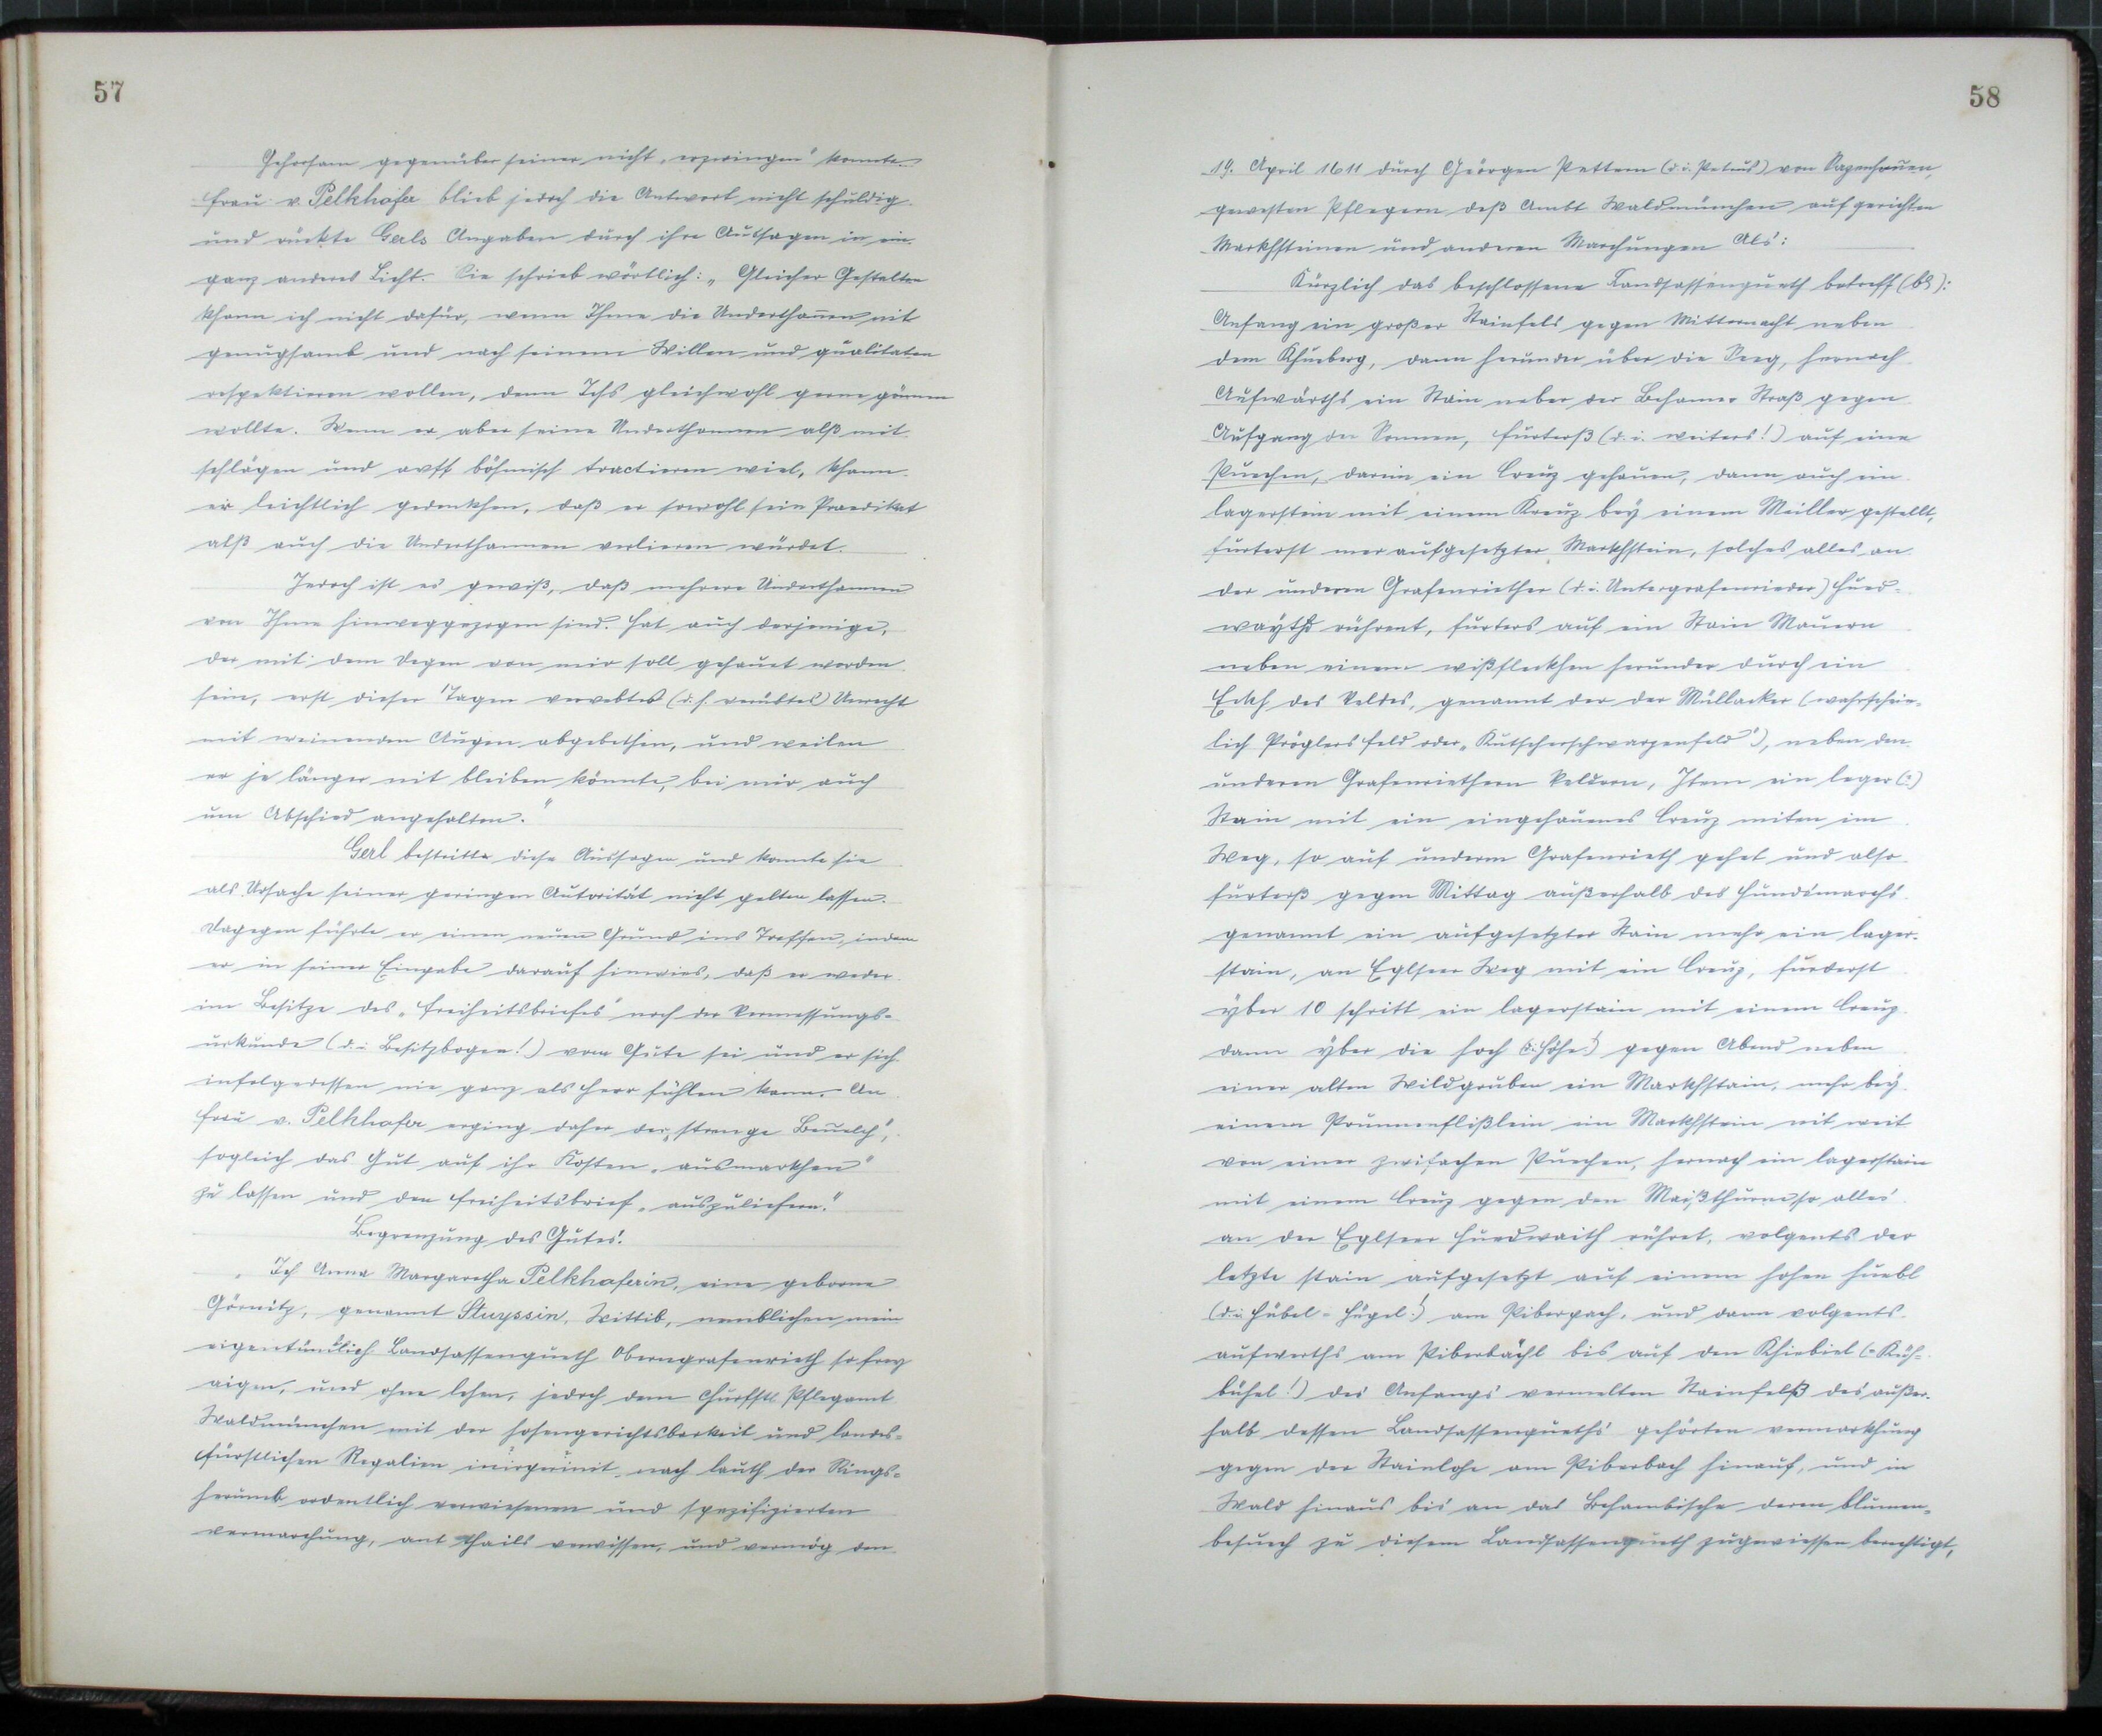 57
Gehorsam gegenüber seiner nicht „erzwingen" konnte.
Frau v. Pelkhofer blieb jedoch die Antwort nicht schuldig
und rückte Gerls Angaben durch ihre Aussagen in ein
ganz anderes Licht. Sie schrieb wörtlich: „Gleicher Gestalten
khann ich nicht dafür, wenn Ihme die Underthanen nit
genugsamb und nach seinem Willen und qualitaten
respektieren wollen, denn Ichs gleichwohl gerne gönnen
wollte. Wenn er aber seine Underthannen alß mit
schlägen und auff böhmisch tractieren wiel, khann
er leichtlich gedenkhen, daß er sowohl sein Praedikat
alß auch die Underthannen verlieren würdet.
Jedoch ist es gewiß, daß mehrere Underthannen
von Ihme hinweggezogen sind. Hat auch derjenige,
der mit dem Degen von mir soll gehauet worden
sein, erst dieser Tagen verwebtes (d. h. verübtes) Unrecht
mit weinenden Augen abgebethen, und weilen
er je länger nit bleiben könnte, bei mir auch
um Abschied angehalten."
Gerl bestritte diese Aussagen und konnte sie
als Ursache seiner geringen Autorität nicht gelten lassen.
Dagegen führte er einen neuen Grund ins Treffen, indem
er in seiner Eingabe darauf hinwies, daß er weder
im Besitze des „Freiheitsbriefes" noch der Vermessungs-
urkunde (d. i. Besitzbogen!) vom Gute sei und er sich
infolgedessen nie ganz als Herr fühlen kann. An
Frau v. Pelkhofer erging daher der „strenge Beuelch",
sogleich das Gut auf ihr Kosten „ausmarkhen"
zu lassen und den Freiheitsbrief „auszuliefern."
Begrenzung des Gutes.
„Ich Anna Margaretha Pelkhoferin, eine geborne
Görnitz, genannt Stuyssin, Wittib, nemblichen mein
eigentümlich Landsassengueth Oberngrafenrieth so frey
aigen, und ohne lehen, jedoch dem Churfstl. Pflegamt
Waldmünchen mit der hohengerichtsbarkeit und landes-
fürstlichen Regalien nach lauth der Rings-
herumb ordentlich verwiesenen und spezifizierten
vermarchung, ant theils verwissen, und vermög den
58
19. April 1611 durch Geörgen Pettern (d. i. Petrus) von
gewesten Pflegern deß Ambt Waldmünchen aufgerichten
Markhsteinen und anderen Marchungen Als:
Kürzlich das beschlossene Landsassengueth betreff (bl):
Anfang ein großer Stainfels gegen Mitternacht neben
dem Khueberg, dann herunder über die Seeg, hernach
Aufwärths ein Stain neber der Behamer Straß gegen
Aufgang der Sonnen, fürterß (d. i. weiters!) auf eine
Puechen, darein ein Creuz gehauen, dann auch ein
lagerstein mit einem Kreuz bey einem Meiller gestellt,
fürterst mer aufgesetzter Markhstein, solches alles an
der underen Grafenriether (d. i. Untergrafenrieder) Hued-
wayth rührent, fürters auf ein Stain Mauern
neben einem wißfleckhen herunder durch ein
Eckh des Veldes, genannt der der Müllacker (wahrschein-
lich Pröglers feld oder „Kutscherschwarzenfeld"), neben den
underen Grafenriethern Veldern, Item ein leger (=)
Stain mit ein eingehauenes Creuz miten im
Weg, so auf undern Grafenrieth gehet und also
fürterß gegen Mittag außerhalb des Hundsmarchs
genannt ein aufgesetzter Stain mehr ein lager-
stain, an Eglseer Weg mit ein Creuz, fürderst
yber 10 schritt ein lagerstain mit einem Creuz
dann yber die hoch (d. i. Höhe!) gegen Abend neben
einer alten Wildgruben ein Markhstain, mehr bey
einem Prunnenflißlein ein Markhstein nit weit
von einer zwifachen Puechen, hernach ein lagerstain
mit einem Creuz gegen den Maißthurn so alles
an der Eglseer Huedwaith rühret, volgents der
letzte stain aufgesetzt auf einem hohen huebl
(d. i. Hübel = Hügel!) am Piberpach, und dann volgents
aufwerths am Piberbächl bis auf den Khiebiel (= Küh-
bühel!) des Anfangs vermelten Stainfelß des außer-
halb dessen Landsassengueths gehörten vermarkhung
gegen der Stainlohe am Piberbach hinauf, und in
Wald hinaus bis an das Behambische deren blumen-
besuech zu diesem Landsassengueth zugewiessen berechtigt,